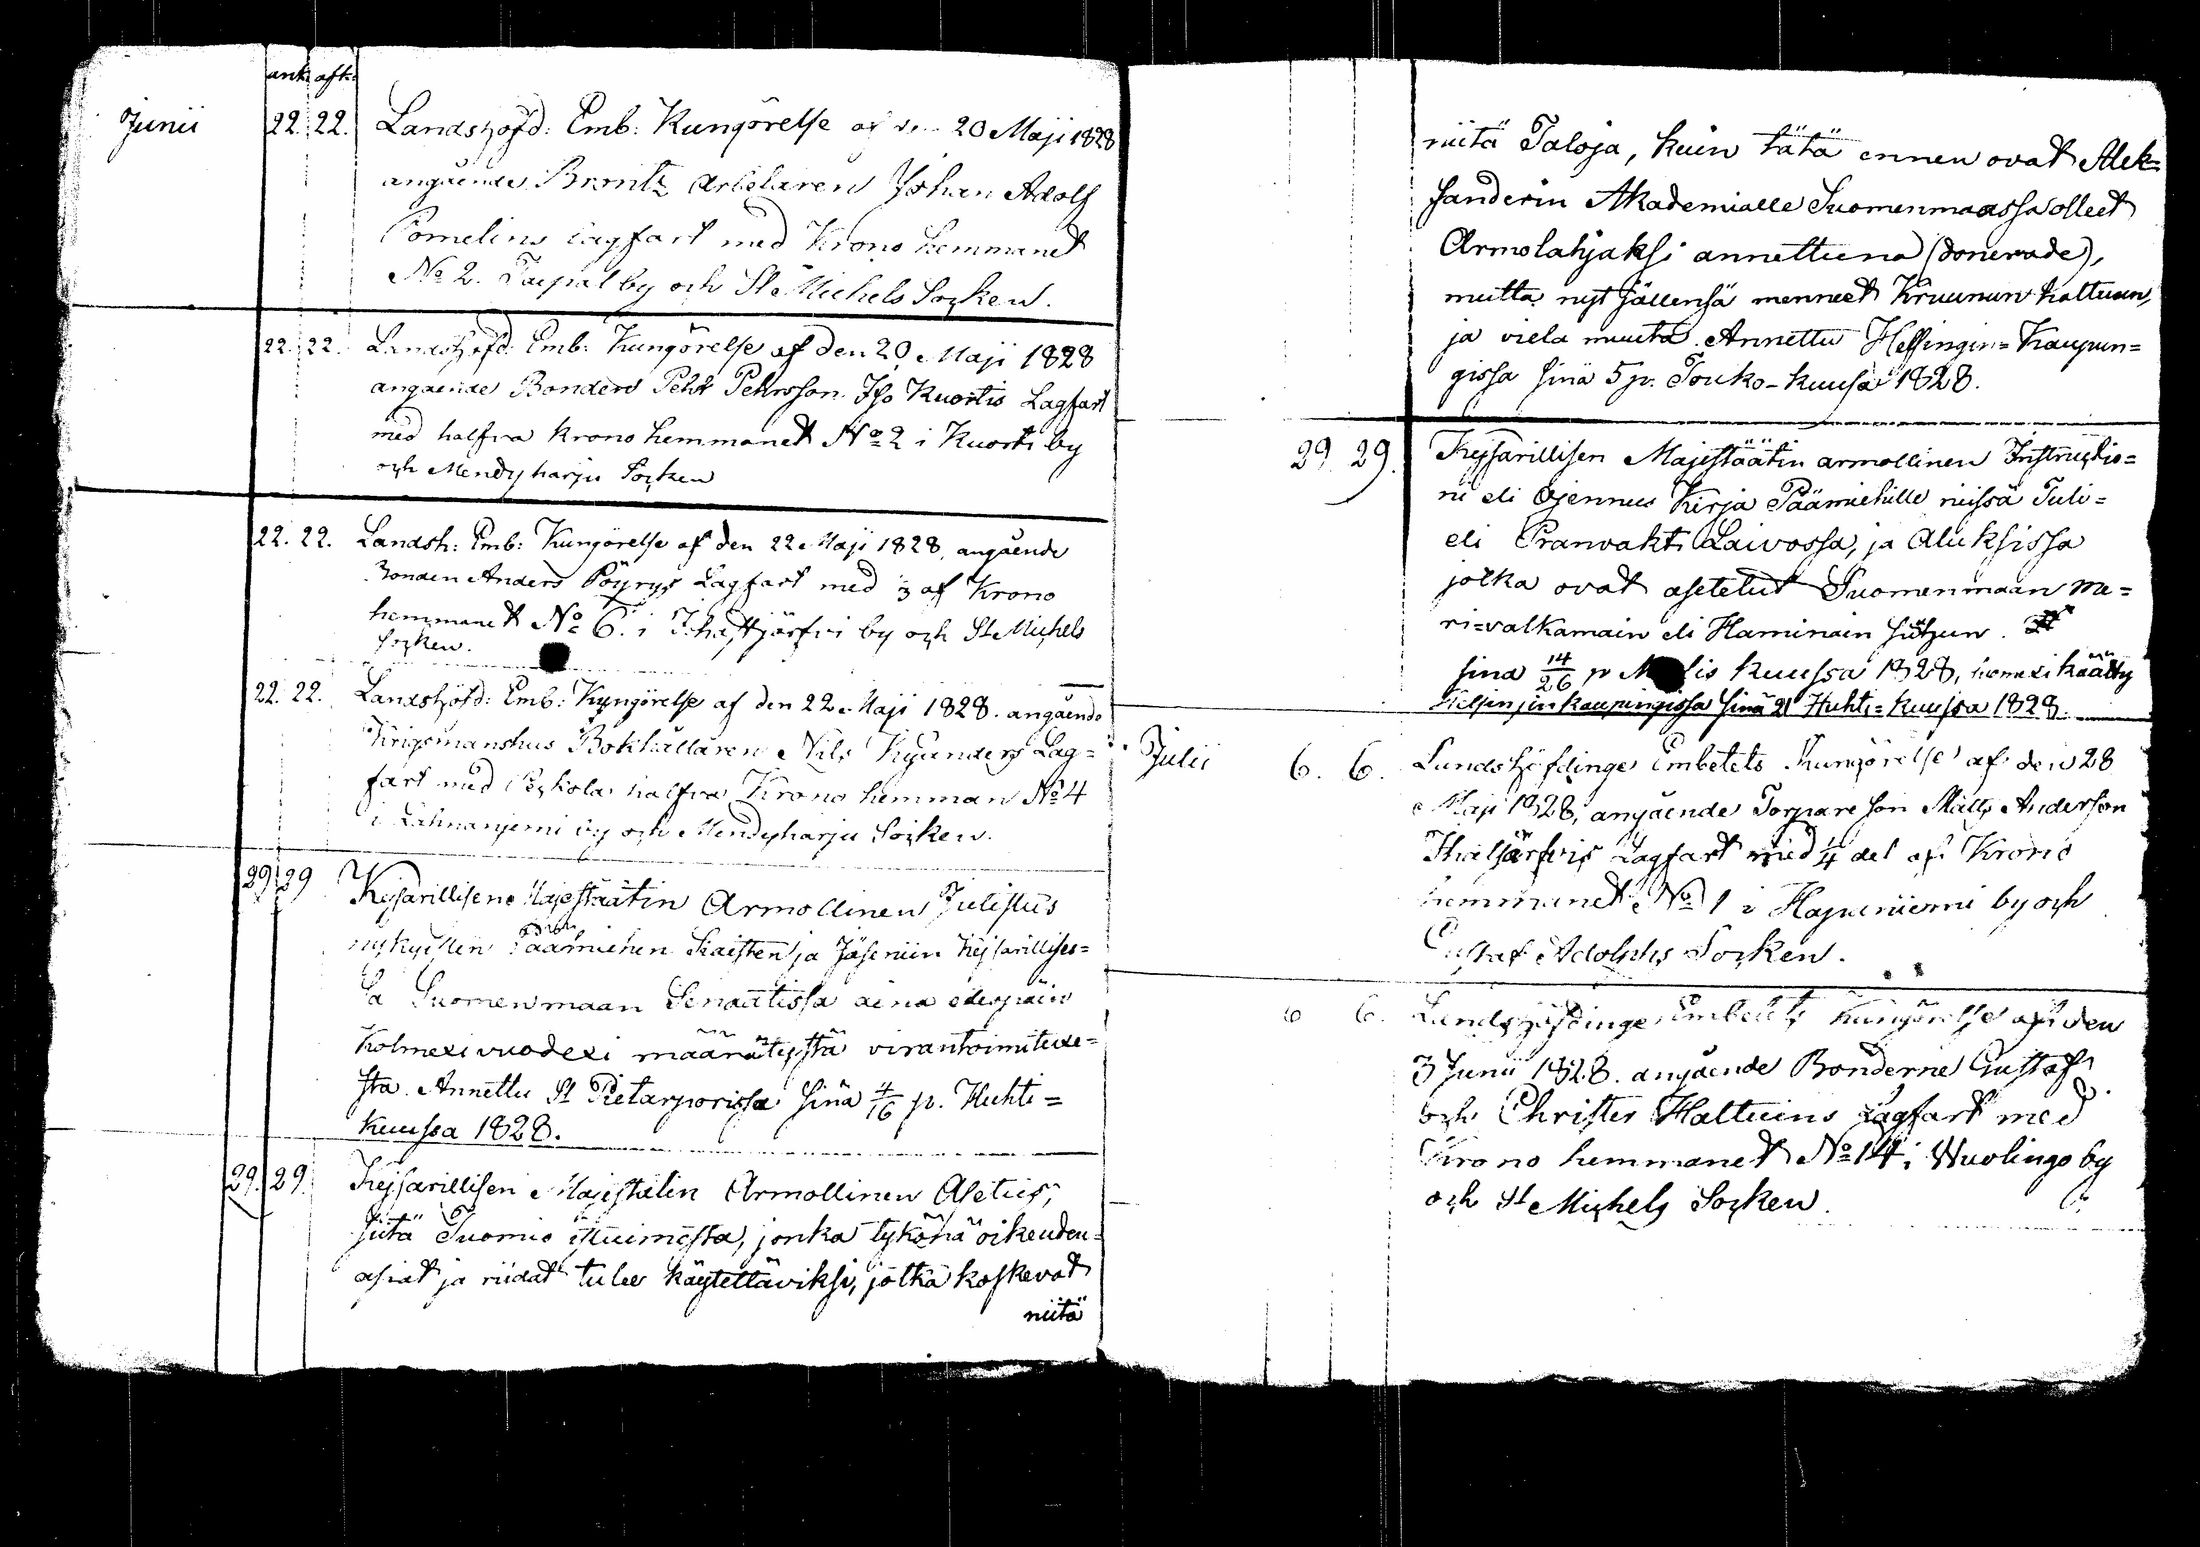 ank: afk:
Junii 22. 22. Landshöfd: Emb: Kungörelse af den 20 Maji 1828
angående Johan Adolf
Pomelins Lagfart med Krono hemmanet
No 2. Taipal by och St Michels Socken.
22. 22. Landshöfd: Emb: Kungörelse af den 20 Maji 1828
angående Bonden Pehr Pehrsson Iso Kuortis Lagfart
med halfva Krono hemmanet No 2 i Kuortis by
och Mendyharju Socken
22. 22. Landsh: Emb: Kungörelse af den 22 Maji 1828, angående
Bonden Anders Pöyrys Lagfart med af Krono
hemmanet No 6. i by och St Michels
Socken.
22. 22. Landshöfd: Emb: Kungörelse af den 22 Maji 1828. angående
Krigsmanshus Bokhållaren Nils Lag=
fart med halfva Krono hemman No 4
i Lahnanjemi by och Mendyharju Socken.
29 29 Kejsarillisen Majestäätin Armollinen Julistus
nykyisten Päämiehen ja Jäsenein Kejsarillises=
sa Suomenmaan Senaatissa aina edespäin
Kolmexi vuodexi määrätystä virantoimituxe=
sta. Annettu St Pietarporissa sinä 4/16 p. Huhti=
kuussa 1828.
29. 29. Kejsarillisen Majestätin Armollinen Asetus,
siitä Tuomio istuimesta, jonka tykönä oikeuden=
asiat ja riidat tulee käytettäviksi, jotka koskevat
niitä
niitä Taloja, kuin tätä ennen ovat Alek=
sanderin Akademialle Suomenmaassa olleet
Armolahjaksi annettuna (donerade),
mutta nyt jällensä mennet Kruunun haltuun,
ja vielä muuta. Annettu Helsingin=Kaupun=
gissa sinä 5 p. Touko-kuusa 1828.
29. 29. Kejsarillisen Majestäätin armollinen Instructio=
ni eli Ojennus Kirja Päämiehille niissä Tuli=
eli Pranvakti Laivossa, ja Aluksissa
jotka ovat asetetut Suomenmaan me=
ri=valkamain eli Haminain suuhun.
sinä 14/26 p kuussa 1828, käätty
Helsinjin kaupungissa sinä 21 Huhti=kuussa 1828.
Julii 6. 6. Landshöfdinge Embetets Kungörelse af den 28
Maji 1828, angående Torpare son Matts Anderson
Lagfart med 1/4 del af Krono
hemmanet No 1 i Hapaniemi by och
Gustaf Adolphs Socken.
6 6. Landshöfdinge Embetets Kungörelse af den
3 Junii 1828. angående Bönderne Gustaf
och Christer Halttuins Lagfart med
Krono hemmanet No 14 i Wuolingo by
och St Michels Socken.